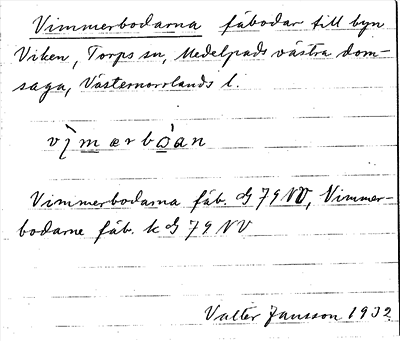 Vimmerbodarna fäbodar till byn
Viken, Torps sn, Medelpads västra dom-
saga, Västernorrlands l.
vi̍mærbɷ̀an
Vimmerbodarna fäb. G 79 NV, Vimmer-
bodarne fäb. k G 79 NV
Valter Jansson 1932